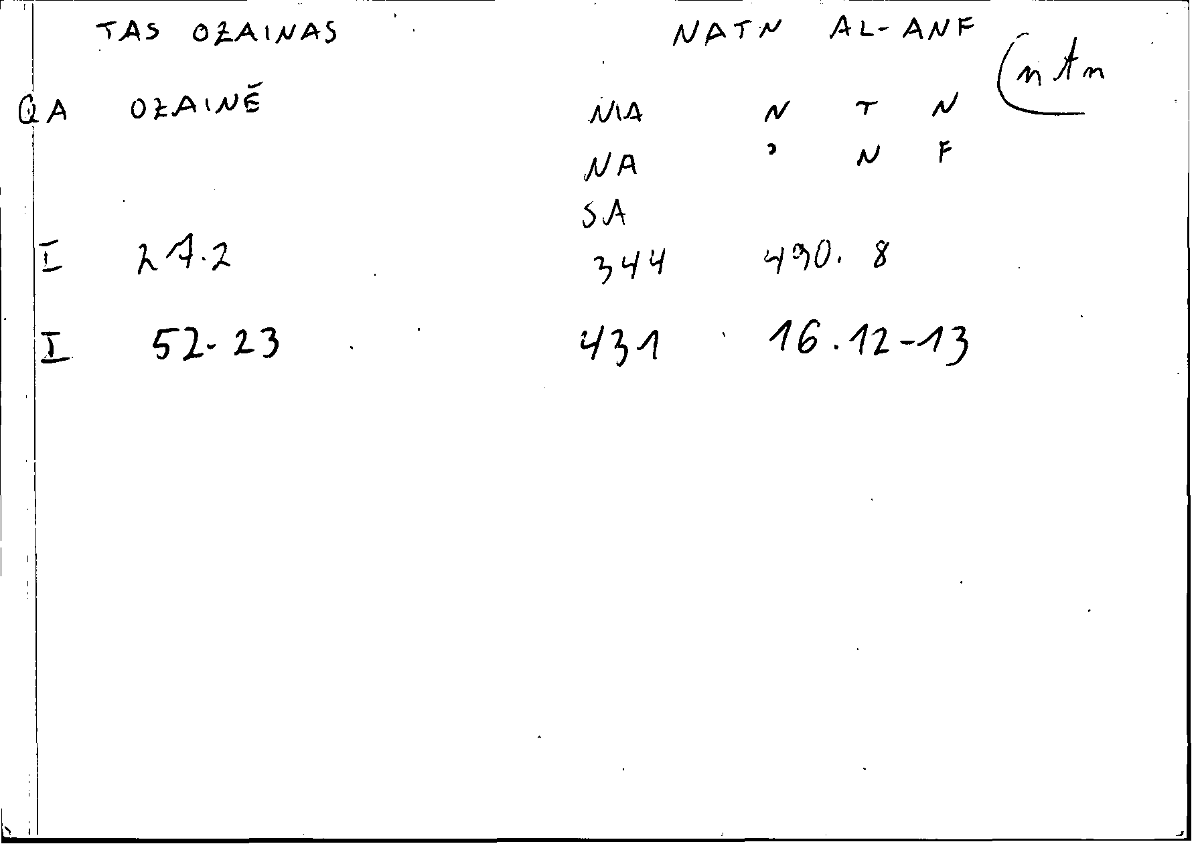 TAS OZAINAS NATN AL-ANF
(ntn
QA OZAINĒ NIA N T N
NA ʾ N F
SA
I 27.2 344 490. 8
I 52-23 431 16.12-13